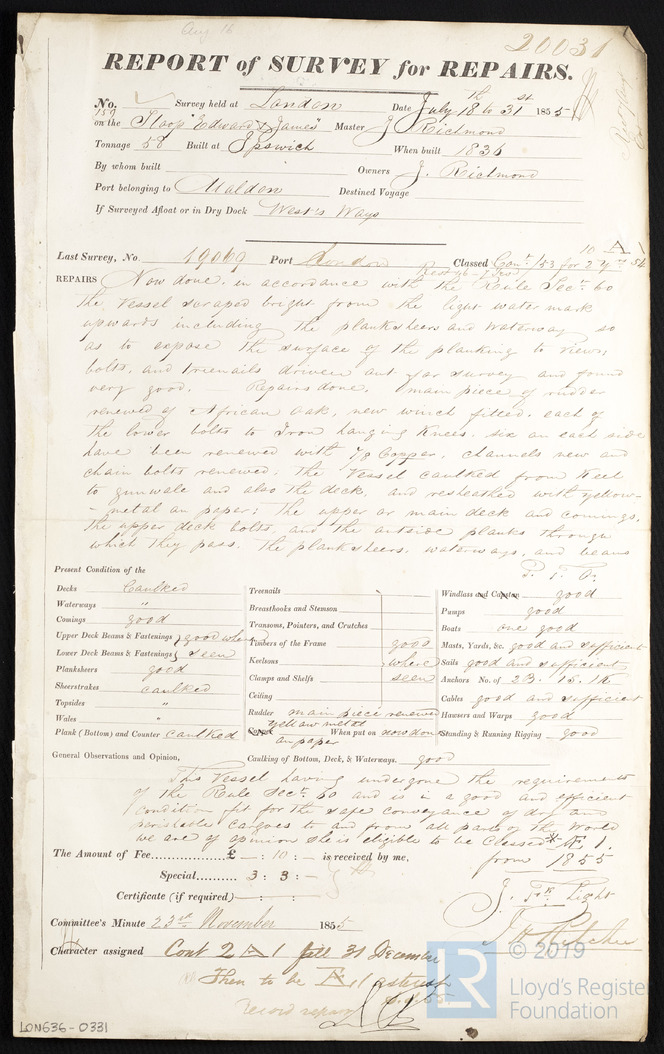 Aug 16
20031
REPORT of SURVEY for REPAIRS.
No. Survey held at London Date July 18th to 31st 1855
159
on the Sloop "Edward & James" Master J Richmond
Tonnage 58 Built at Ipswich When built 1836
By whom built Owners J. Richmond
Port belonging to Maldon Destined Voyage
If Surveyed Afloat or in Dry Dock West's Ways
10 A 1
Last Survey, No. 19069 Port London Classed Cont. /53 for 2 yrs 54
REPAIRS Now done. in accordance with the Rule Sect. 60
the Vessel scraped bright from the light water mark
upwards including the planksheers and waterway so
as to expose the surface of the planking to view,
bolts, and treenails driven out for survey and found
very good. — Repairs done. main piece of rudder
renewed of African oak, new winch fitted. each of
the lower bolts to Iron hanging Knees. six on each side
have been renewed with 7/8 Copper. channels new and
chain bolts renewed. the Vessel caulked from Keel
to gunwale and also the deck, and resheathed with yellow
- metal on paper; the upper or main deck and comings,
the upper deck bolts, and the outside planks through
which they pass. the planksheers, waterways, and beams
P. T. O.
Present Condition of the
Decks Caulked
Waterways "
Comings good
Upper Deck Beams & Fastenings } good where
Lower Deck Beams & Fastenings } seen
Planksheers good
Sheerstrakes caulked
Topsides "
Wales "
Plank (Bottom) and Counter caulked
Treenails
Breasthooks and Stemson
Transoms, Pointers, and Crutches
Timbers of the Frame good
Keelsons where
Clamps and Shelfs seen
Ceiling
Rudder main piece renewed
yellow metal
Copper When put on now done
on paper
Windlass and Capstan good
Pumps good
Boats one good
Masts, Yards, &c. good and sufficient
Sails good and sufficient
Anchors No. of 2B. 1S. 1K.
Cables good and sufficient
Hawsers and Warps good
Standing & Running Rigging good
General Observations and Opinion, Caulking of Bottom, Deck, & Waterways. good
This Vessel having undergone the requirements
of the Rule Sect. 60 and is in a good and efficient
condition fit for the safe conveyance of dry and
perishable cargoes to and from all parts of the World
we are of opinion she is eligible to be Classed * A. 1.
from 1855
The Amount of Fee............... £ — : 10 : — is received by me,
Special........... 3 : 3 : —
Certificate (if required)
J. Light
Committee's Minute 23rd November 1855
Character assigned Cont 2 A 1 till 31 December
Then to be A 1
Record repairs
LON636-0331
LR
© 2019
Lloyd's Register
Foundation